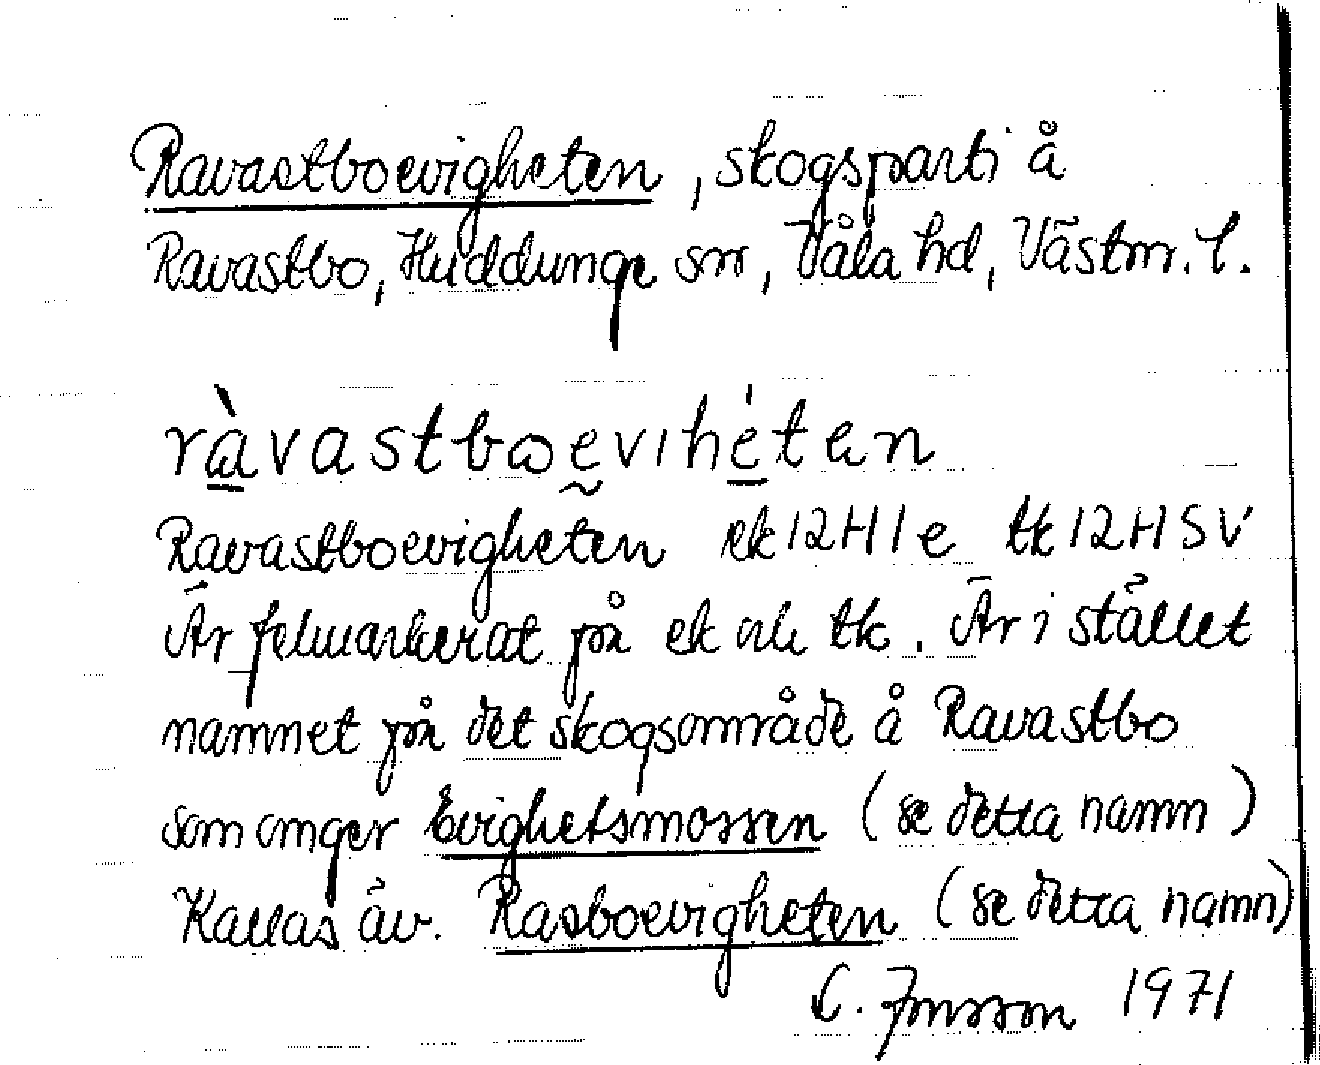 Ravastboevigheten, skogsparti å
Ravastbo, Huddunge sn, Våla hd, Västm. l.
ràvastboevihéten
Ravastboevigheten ek 12H1e tk 12HSV
Är felmarkerat på ek och tk. Är i stället
namnet på det skogsområde å Ravastbo
som omger Evighetsmossen (se detta namn)
Kallas äv. Rasboevigheten (se detta namn)
C. Jonsson 1971